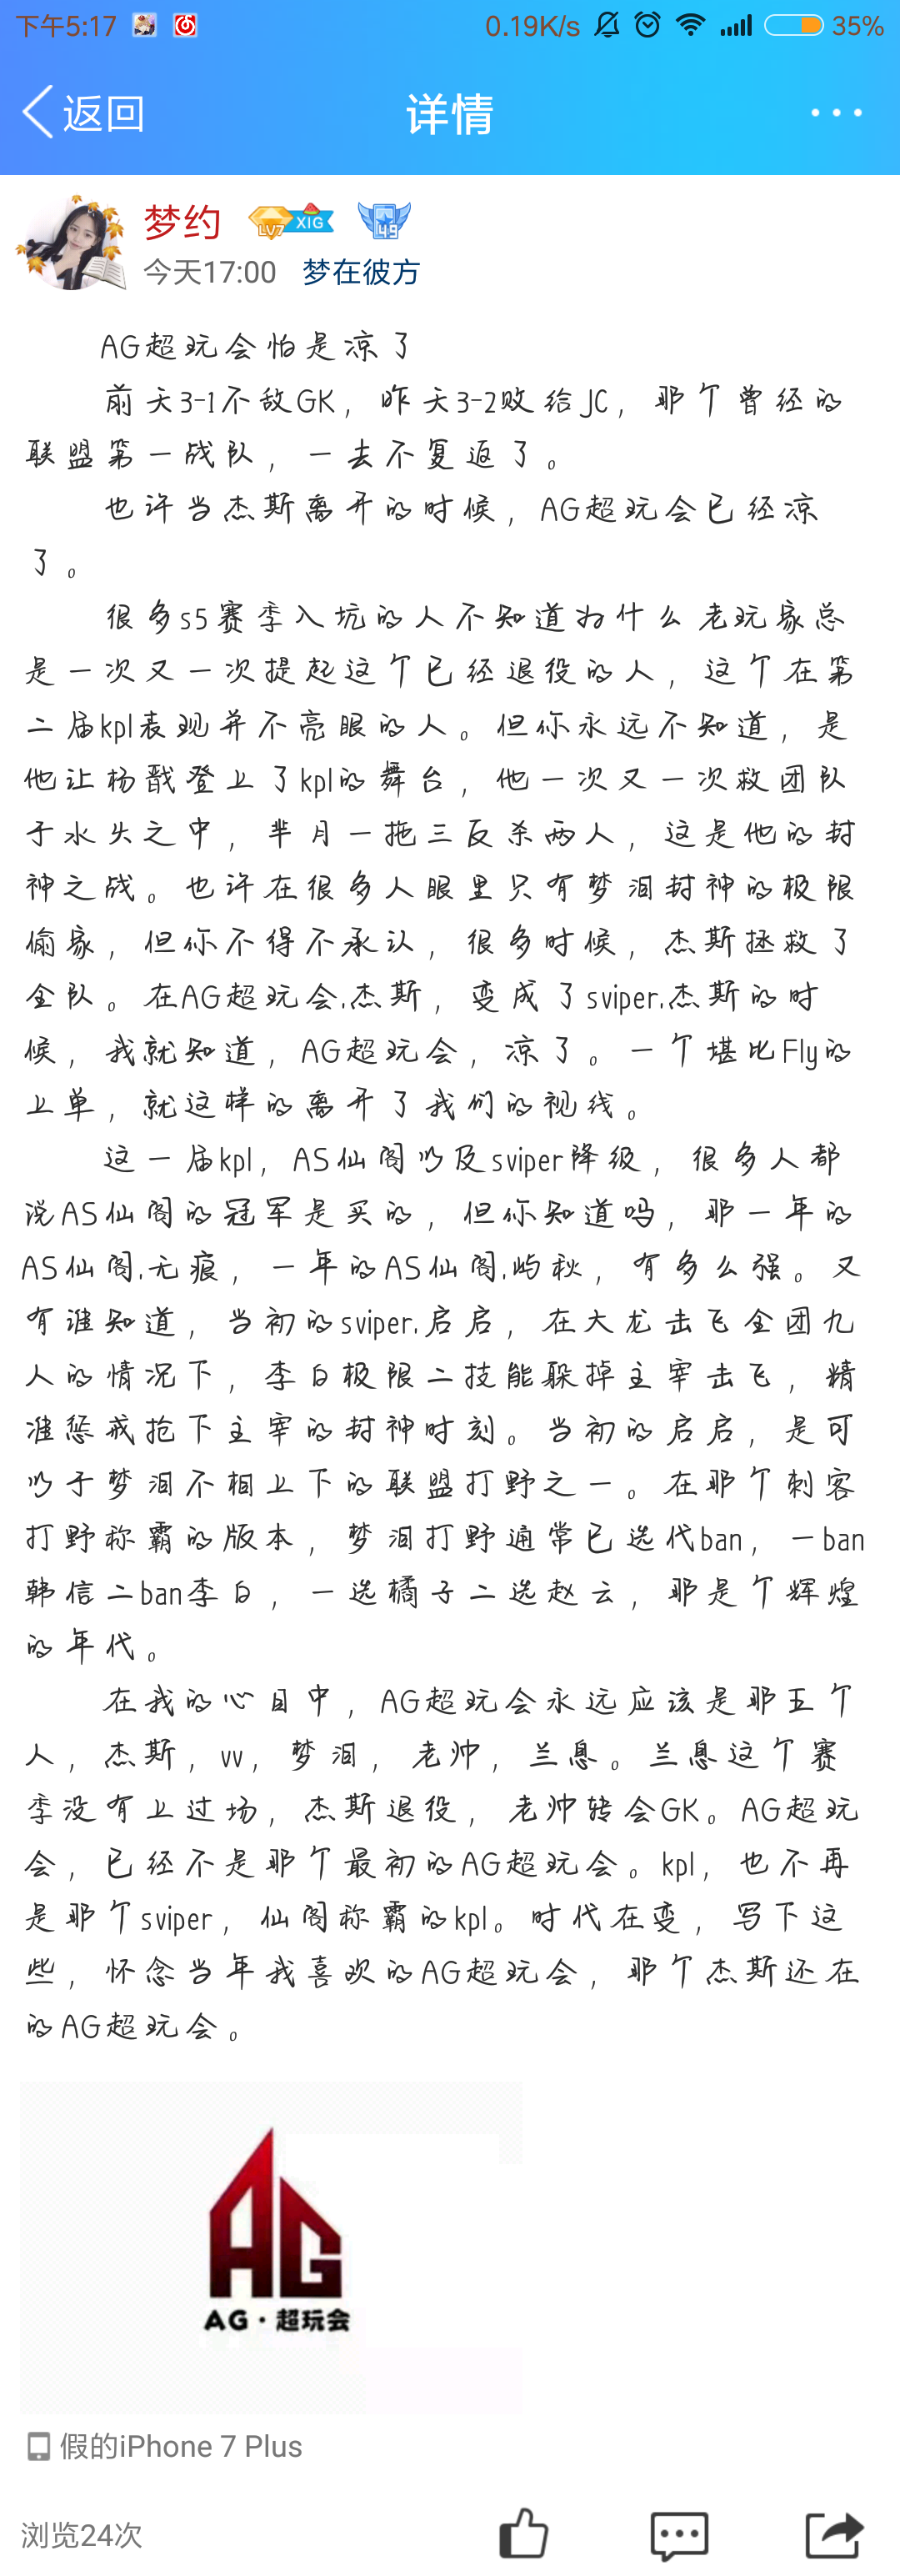 下午5:17 0.19K/s 35%
返回 详情
梦约 LV7 XIG 49
今天17:00 梦在彼方
AG超玩会怕是凉了
前天3-1不敌GK，昨天3-2败给JC，那个曾经的
联盟第一战队，一去不复返了。
也许当杰斯离开的时候，AG超玩会已经凉
了。
很多s5赛季入坑的人不知道为什么老玩家总
是一次又一次提起这个已经退役的人，这个在第
二届kpl表现并不亮眼的人。但你永远不知道，是
他让杨戬登上了kpl的舞台，他一次又一次救团队
于水火之中，芈月一拖三反杀两人，这是他的封
神之战。也许在很多人眼里只有梦泪封神的极限
偷家，但你不得不承认，很多时候，杰斯拯救了
全队。在AG超玩会.杰斯，变成了sviper.杰斯的时
候，我就知道，AG超玩会，凉了。一个堪比Fly的
上单，就这样的离开了我们的视线。
这一届kpl，AS仙阁以及sviper降级，很多人都
说AS仙阁的冠军是买的，但你知道吗，那一年的
AS仙阁.无痕，一年的AS仙阁.屿秋，有多么强。又
有谁知道，当初的sviper.启启，在大龙击飞全团九
人的情况下，李白极限二技能躲掉主宰击飞，精
准惩戒抢下主宰的封神时刻。当初的启启，是可
以于梦泪不相上下的联盟打野之一。在那个刺客
打野称霸的版本，梦泪打野通常已选代ban，一ban
韩信二ban李白，一选橘子二选赵云，那是个辉煌
的年代。
在我的心目中，AG超玩会永远应该是那五个
人，杰斯，vv，梦泪，老帅，兰息。兰息这个赛
季没有上过场，杰斯退役，老帅转会GK。AG超玩
会，已经不是那个最初的AG超玩会。kpl，也不再
是那个sviper，仙阁称霸的kpl。时代在变，写下这
些，怀念当年我喜欢的AG超玩会，那个杰斯还在
的AG超玩会。
AG
AG·超玩会
假的iPhone 7 Plus
浏览24次